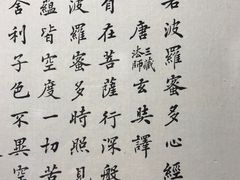 若波羅蜜多心經
唐三藏法師玄奘譯
自在菩薩行深般
波羅蜜多時照見
蘊皆空度一切苦
舍利子色不異空